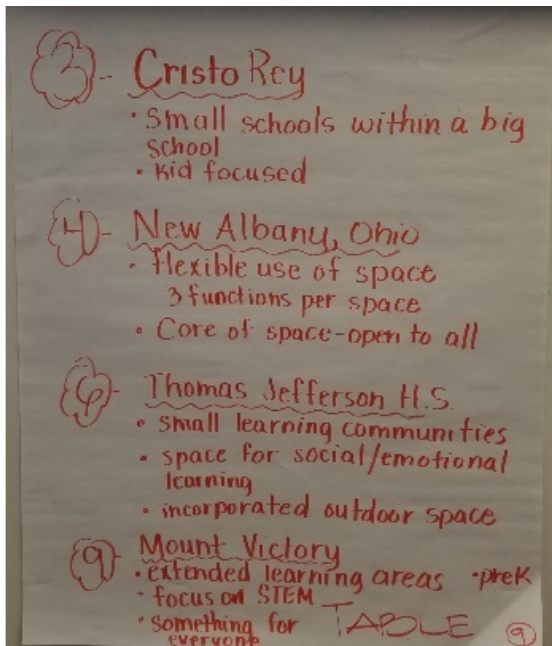 3 - Cristo Rey
• Small schools within a big
school
• Kid focused
4 - New Albany, Ohio
• flexible use of space
3 functions per space
• Core of space - open to all
6 - Thomas Jefferson H.S.
• small learning communities
• space for social/emotional
learning
• incorporated outdoor space
9 - Mount Victory
• extended learning areas • preK
• focus on STEM
• something for
everyone
TABLE 9